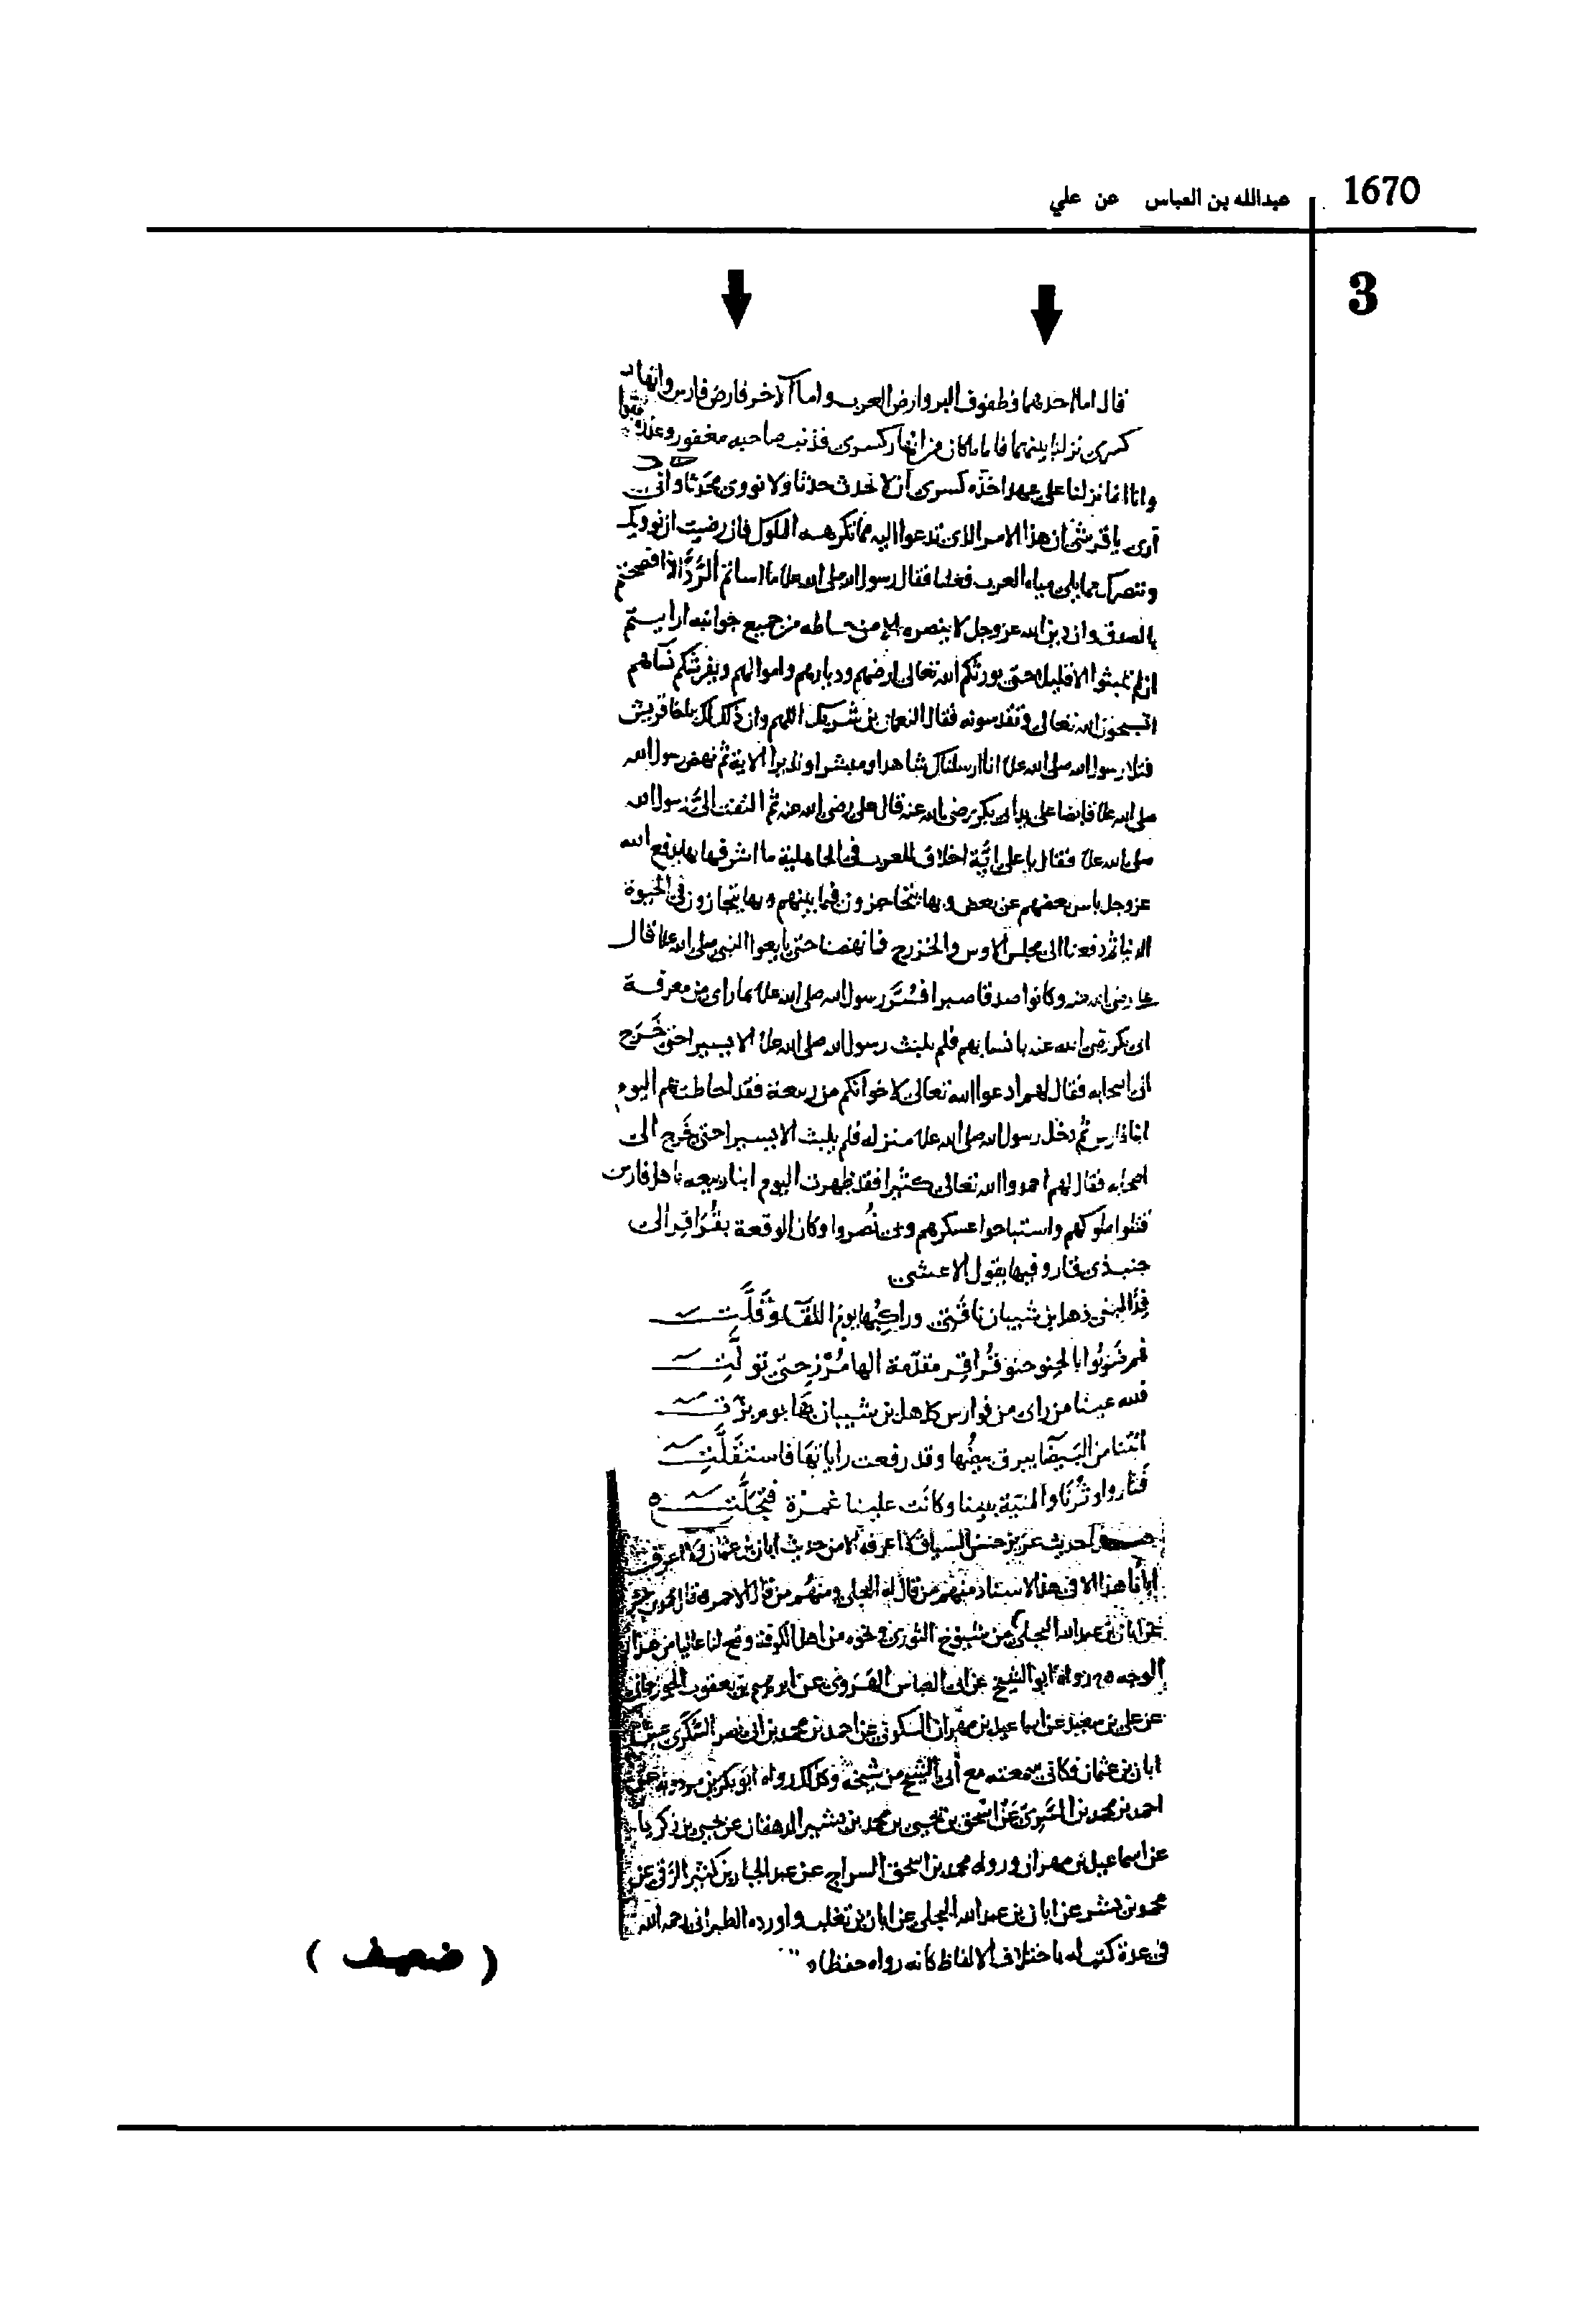 1670
عبدالله بن العباس عن علي
3
قال اما احدهما فطفوف البر وارض العرب واما الآخر فارض فارس وانهار
كسرى نزلنا بينهما فاما ما كان من انهار كسرى فذنب صاحبه مغفور وعذره
وانا انما نزلنا على عهد اخذه كسرى ان لا نحدث حدثا ولا نووى محدثا وانى
أرى يا قرشى ان هذا الامر الذى تدعوا اليه مما تكرهه الملوك فان رضيت ان نوويك
وننصرك مما يلى مياه العرب فعلنا فقال رسول الله صلى الله علـ ما اساتم الرد اذا فصحتم
بالصدق وان دين الله عز وجل لا ينصره الا من حاطه من جميع جوانبه ارايتم
ان لم تلبثوا الا قليلا حتى يورثكم الله تعالى ارضهم وديارهم واموالهم ويفرشكم نساهم
اتسبحون الله تعالى وتقدسونه فقال النعمان بن شريك اللهم وان ذلك لك يا اخا قريش
فتلا رسول الله صلى الله علـ انا ارسلناك شاهدا ومبشرا ونذيرا الاية ثم نهض رسول الله
صلى الله علـ قابضا على يد ابى بكر رضى الله عنه قال على رضى الله عنه ثم التفت الىَّ رسول الله
صلى الله علـ فقال يا على ايّة اخلاق للعرب فى الجاهلية ما اشرفها بها يدفع الله
عز وجل باس بعضهم عن بعض وبها يتحاجزون فيما بينهم وبها يتجازون فى الحيوة
الدنيا ثم دفعنا الى مجلس الاوس والخزرج فما نهضنا حتى بايعوا النبى صلى الله علـ قال
على رضى الله عنه وكانوا صدقا صبرا فسُرَّ رسول الله صلى الله علـ بما راى من معرفة
ابى بكر رضى الله عنه بانسابهم فلم يلبث رسول الله صلى الله علـ الا يسيرا حتى خَرَج
الى اصحابه فقال لهم ادعوا الله تعالى لاخوانكم من ربيعة فقد احاطت بهم اليوم
ابنا فارس ثم دخل رسول الله صلى الله علـ منزله فلم يلبث الا يسيرا حتى خرج الى
اصحابه فقال لهم احمدوا الله تعالى كثيرا فقد ظهرت اليوم ابنا ربيعه باهل فارس
قتلوا ملوكهم واستباحوا عسكرهم وبى نُصروا وكان الوقعة بقُراقِر الى
جنب ذى قار وفيها يقول الاعشى
فِدًا لبنى ذهل بن شيبان ناقتى وراكبُها يوم اللقآ وقَلَّتِ
هم ضَربُوا بالحِنو حنو قُراقِر مقدّمة الهامُرْزِ حتى تولَّتِ
فلله عينا من راى من فوارس كذهل بن شيبان بها يوم
اتتنا من البيضا يبرق بيضُها وقد رفعت راياتها فاستقَلَّتِ
فثاروا وثُرنا والمنيّة بيننا وكانت علينا غمرة فتجلَّتِ
الحديث غريب حسن السياق لا اعرفه الا من حديث ابان بن عثمان ولا اعرف
ابانا هذا الا فى هذا الاسناد منهم من قال له البجلى ومنهم من قال الاحمر قال محمد بن بشر
عن ابان بن عبد الله البجلى من شيوخ الثورى ونحوه من اهل الكوفة وقع لنا عاليا من هذا
الوجه رواه ابو الشيخ عن ابى العباس الهروى عن ابرهيم بن يعقوب الجوزجانى
عن على بن معبد عن اسماعيل بن مهران السكونى عن احمد بن محمد بن ابى نصر السكرى عن
ابان بن عثمان وكانى سمعته مع أبى الشيخ من شيخه وكذلك رواه ابو بكر بن مردويه عن
احمد بن محمد بن السرى عن اسحق بن يحيى بن محمد بن بشير الدهقان عن يحيى بن زكريا
عن اسماعيل بن مهران ورواه محمد بن اسحق السراج عن عبد الجبار بن كثير الرقى عن
محمد بن بشر عن ابان بن عبد الله البجلى عن ابان بن تغلب واورده الطبرانى رحمه الله
فى عدة كتب له باختلاف الالفاظ كانه رواه حفظا
( ضعيف )